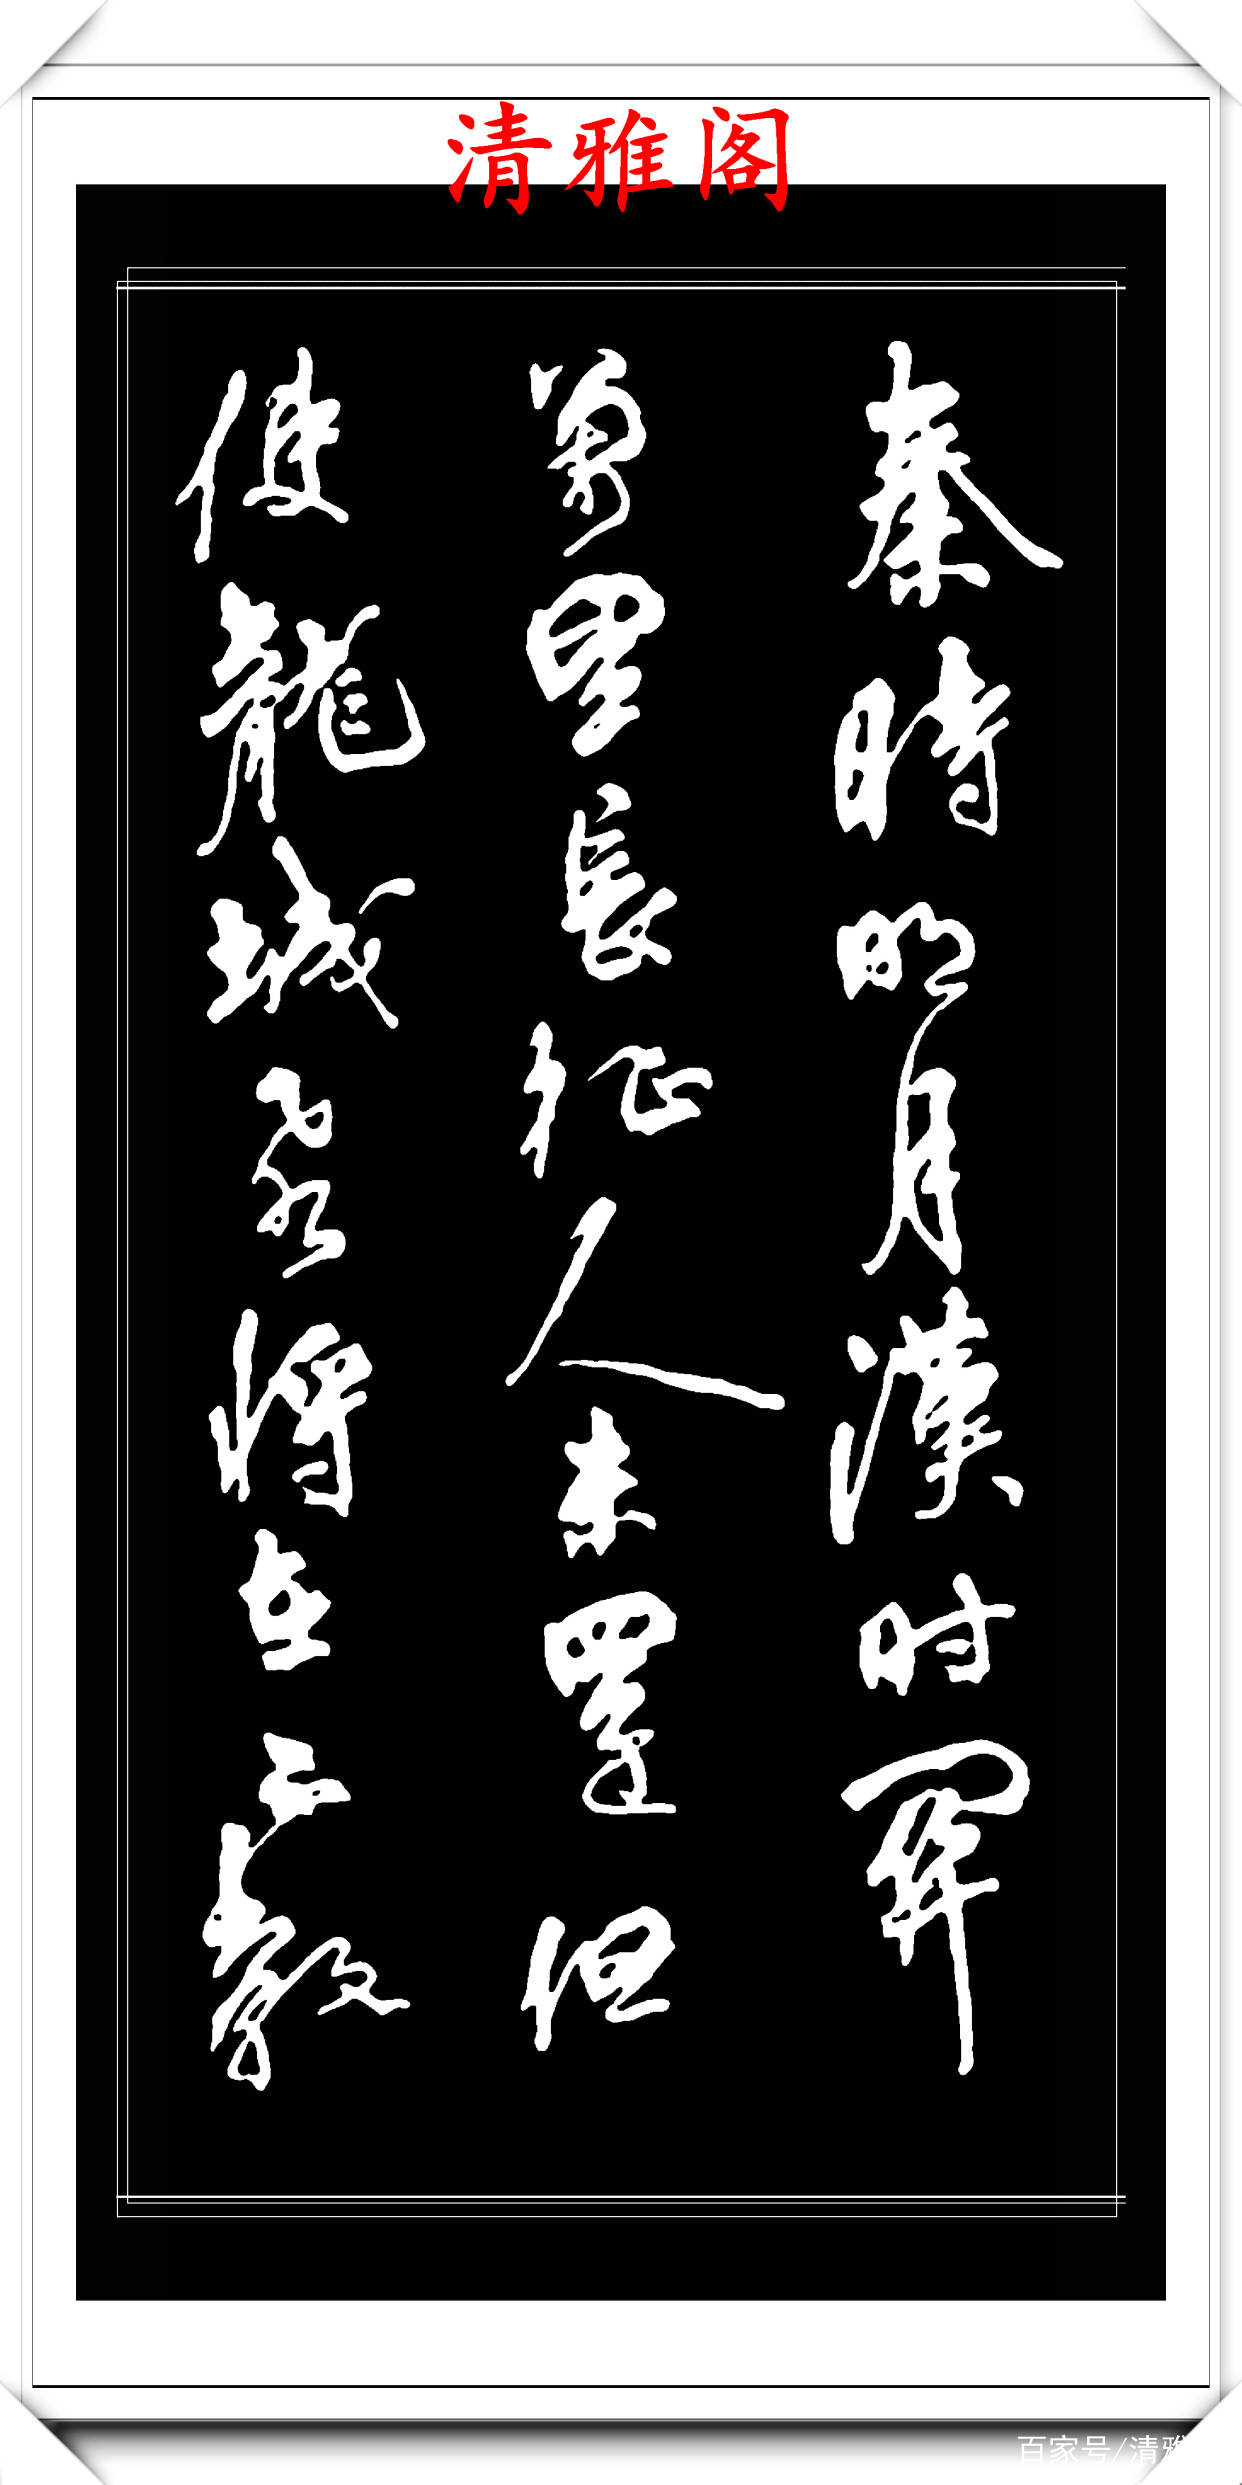 清雅阁
秦時明月漢时関
萬里長征人未還但
使龍城飛將在不教
百家号/清雅